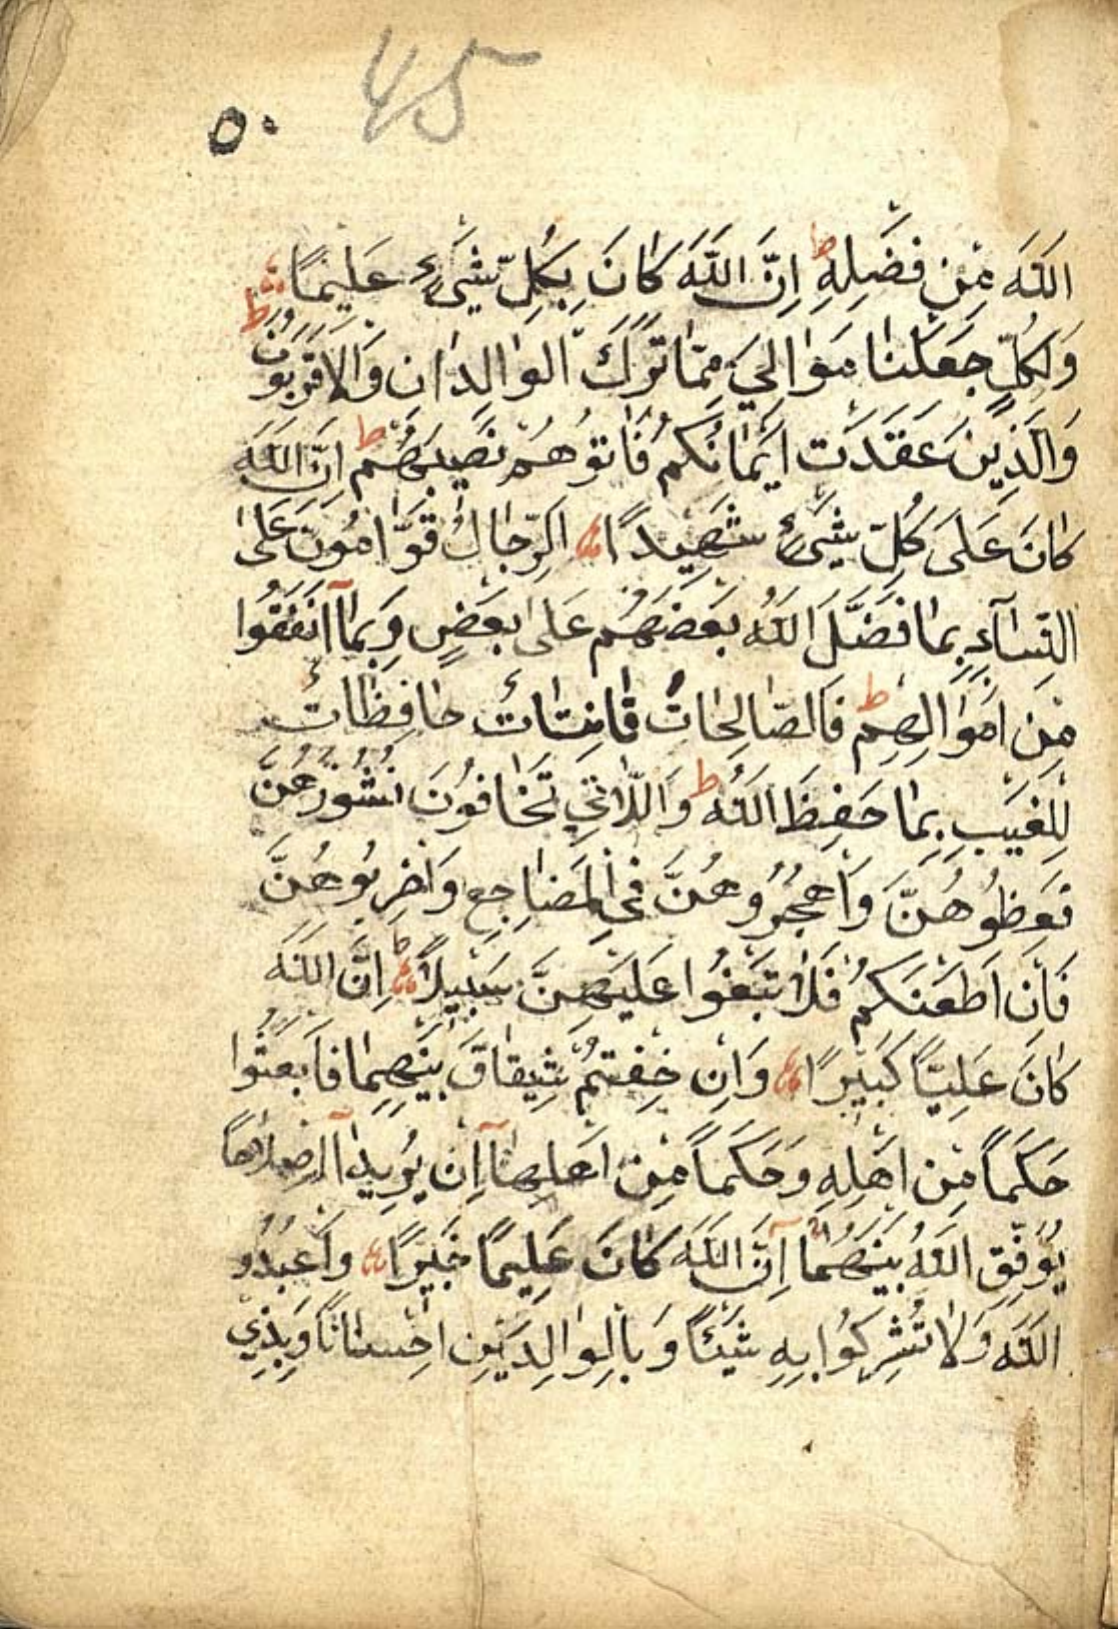 45
٥٠
اللّٰهَ مِنْ فَضْلِهِ ط اِنَّ اللّٰهَ كَانَ بِكُلِّ شَىْءٍ عَلِيمًا
وَلِكُلٍّ جَعَلْنَا مَوَالِيَ مِمَّا تَرَكَ الْوَالِدَانِ وَالْاَقْرَبُونَ ط
وَالَّذِينَ عَقَدَتْ اَيْمَانُكُمْ فَاٰتُوهُمْ نَصِيبَهُمْ ط اِنَّ اللّٰهَ
كَانَ عَلَى كُلِّ شَىْءٍ شَهِيدًا اَلرِّجَالُ قَوَّامُونَ عَلَى
النِّسَآءِ بِمَا فَضَّلَ اللّٰهُ بَعْضَهُمْ عَلَى بَعْضٍ وَبِمَآ اَنْفَقُوا
مِنْ اَمْوَالِهِمْ ط فَالصَّالِحَاتُ قَانِتَاتٌ حَافِظَاتٌ
لِلْغَيْبِ بِمَا حَفِظَ اللّٰهُ ط وَاللَّاتِي تَخَافُونَ نُشُوزَهُنَّ
فَعِظُوهُنَّ وَاهْجُرُوهُنَّ فِي الْمَضَاجِعِ وَاضْرِبُوهُنَّ
فَاِنْ اَطَعْنَكُمْ فَلَا تَبْغُوا عَلَيْهِنَّ سَبِيلًا ط اِنَّ اللّٰهَ
كَانَ عَلِيًّا كَبِيرًا وَاِنْ خِفْتُمْ شِقَاقَ بَيْنِهِمَا فَابْعَثُوا
حَكَمًا مِنْ اَهْلِهِ وَحَكَمًا مِنْ اَهْلِهَآ اِنْ يُرِيدَآ اِصْلَاحًا
يُوَفِّقِ اللّٰهُ بَيْنَهُمَا اِنَّ اللّٰهَ كَانَ عَلِيمًا خَبِيرًا وَاعْبُدُو
اللّٰهَ وَلَا تُشْرِكُوا بِهِ شَيْئًا وَبِالْوَالِدَيْنِ اِحْسَانًا وَبِذِي